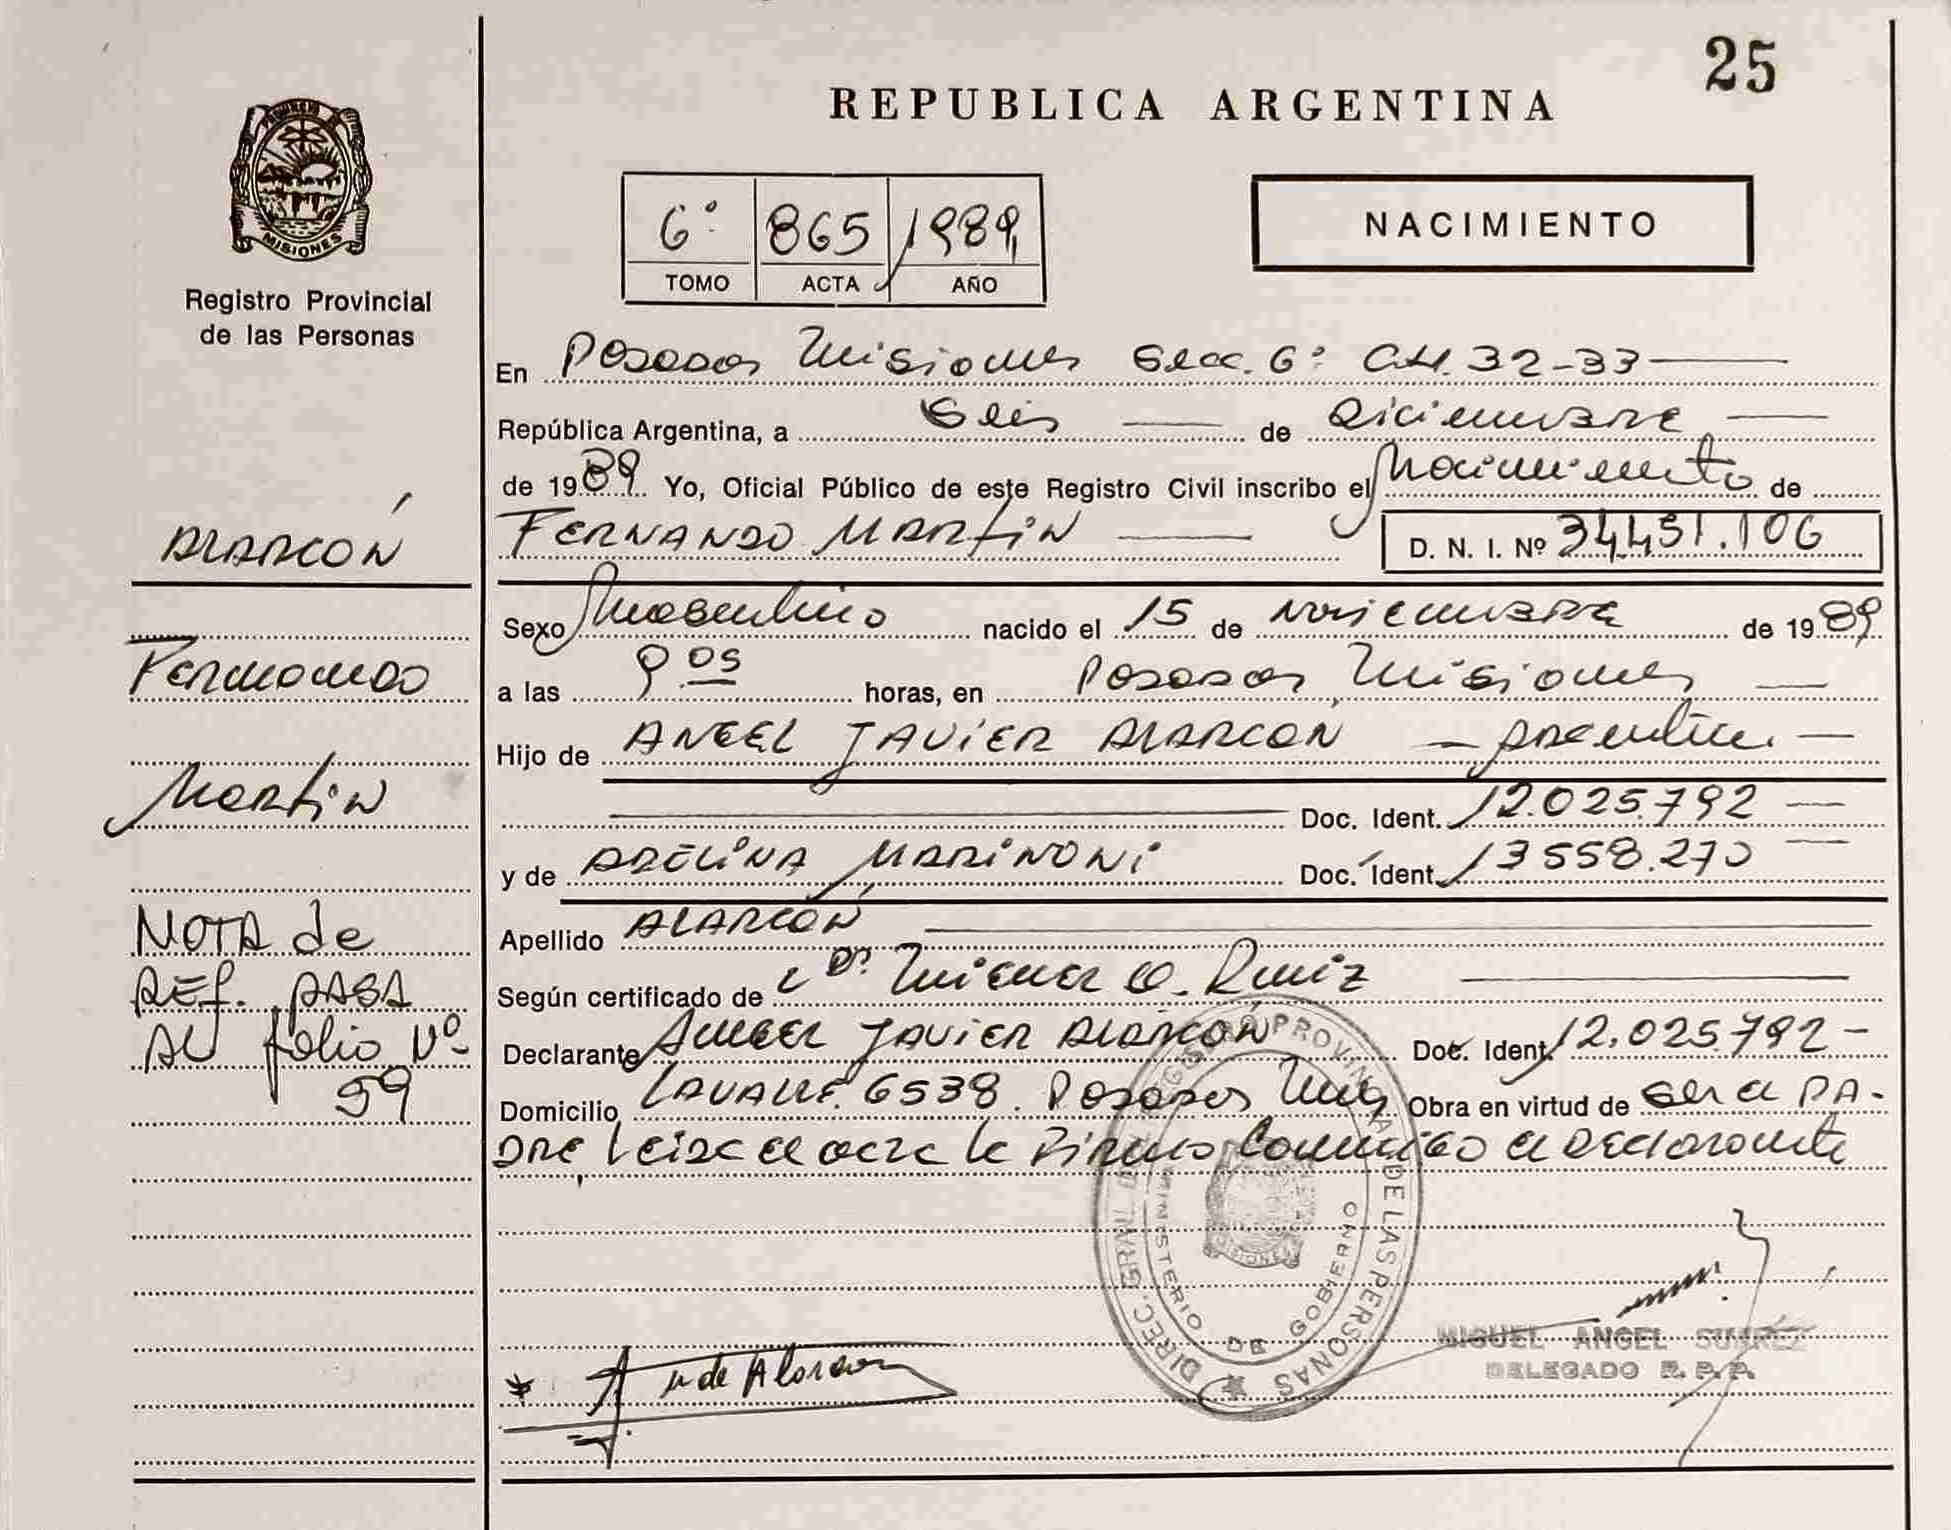 25
REPUBLICA ARGENTINA
MISIONES
Registro Provincial
de las Personas
6º 865 1989
TOMO ACTA AÑO
NACIMIENTO
En Posadas Misiones Secc. 6º 32-33
República Argentina, a Seis de Diciembre
de 1989 Yo, Oficial Público de este Registro Civil inscribo el Nacimiento de
FERNANDO MARTIN D. N. I. Nº 34.431.106
Sexo Masculino nacido el 15 de Noviembre de 1989
a las 9.05 horas, en Posadas Misiones
Hijo de ANGEL JAVIER ALARCON
Doc. Ident. 12.025.792
y de MARINONI Doc. Ident. 13558.270
Apellido ALARCÓN
Según certificado de Dr. Ruiz
Declarante Angel JAVIER ALARCÓN Doc. Ident. 12.025.792
Domicilio LAVALLE 6538 Posadas Obra en virtud de ser el PA-
DRE el acta el Declarante
ALARCÓN
Fernando
Martin
NOTA de
REF. PASA
AL folio Nº
59
DIREC. GRAL. DEL REGISTRO PROVINCIAL DE LAS PERSONAS
MINISTERIO DE GOBIERNO
MISIONES
de Alarcon
MIGUEL ANGEL SUAREZ
DELEGADO R. P. P.